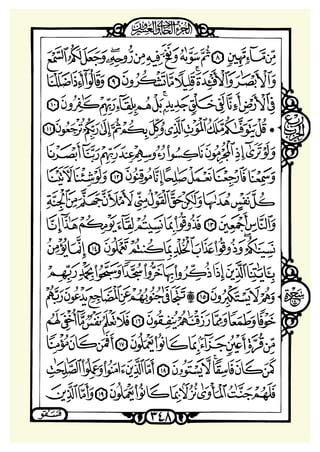 الجزء الحادي والعشرون
مِّن مَّآءٍ مَّهِينٍ ٨ ثُمَّ سَوَّىٰهُ وَنَفَخَ فِيهِ مِن رُّوحِهِۦ وَجَعَلَ لَكُمُ ٱلسَّمْعَ
وَٱلْأَبْصَٰرَ وَٱلْأَفْـِٔدَةَ قَلِيلًا مَّا تَشْكُرُونَ ٩ وَقَالُوٓا۟ أَءِذَا ضَلَلْنَا
فِى ٱلْأَرْضِ أَءِنَّا لَفِى خَلْقٍ جَدِيدٍۭ بَلْ هُم بِلِقَآءِ رَبِّهِمْ كَٰفِرُونَ ١٠
قُلْ يَتَوَفَّىٰكُم مَّلَكُ ٱلْمَوْتِ ٱلَّذِى وُكِّلَ بِكُمْ ثُمَّ إِلَىٰ رَبِّكُمْ تُرْجَعُونَ ١١
وَلَوْ تَرَىٰٓ إِذِ ٱلْمُجْرِمُونَ نَاكِسُوا۟ رُءُوسِهِمْ عِندَ رَبِّهِمْ رَبَّنَآ أَبْصَرْنَا
وَسَمِعْنَا فَٱرْجِعْنَا نَعْمَلْ صَٰلِحًا إِنَّا مُوقِنُونَ ١٢ وَلَوْ شِئْنَا لَءَاتَيْنَا
كُلَّ نَفْسٍ هُدَىٰهَا وَلَٰكِنْ حَقَّ ٱلْقَوْلُ مِنِّى لَأَمْلَأَنَّ جَهَنَّمَ مِنَ ٱلْجِنَّةِ
وَٱلنَّاسِ أَجْمَعِينَ ١٣ فَذُوقُوا۟ بِمَا نَسِيتُمْ لِقَآءَ يَوْمِكُمْ هَٰذَآ إِنَّا
نَسِينَٰكُمْ وَذُوقُوا۟ عَذَابَ ٱلْخُلْدِ بِمَا كُنتُمْ تَعْمَلُونَ ١٤ إِنَّمَا يُؤْمِنُ
بِـَٔايَٰتِنَا ٱلَّذِينَ إِذَا ذُكِّرُوا۟ بِهَا خَرُّوا۟ سُجَّدًا وَسَبَّحُوا۟ بِحَمْدِ رَبِّهِمْ
وَهُمْ لَا يَسْتَكْبِرُونَ ١٥ تَتَجَافَىٰ جُنُوبُهُمْ عَنِ ٱلْمَضَاجِعِ يَدْعُونَ رَبَّهُمْ
خَوْفًا وَطَمَعًا وَمِمَّا رَزَقْنَٰهُمْ يُنفِقُونَ ١٦ فَلَا تَعْلَمُ نَفْسٌ مَّآ أُخْفِىَ لَهُم
مِّن قُرَّةِ أَعْيُنٍ جَزَآءًۢ بِمَا كَانُوا۟ يَعْمَلُونَ ١٧ أَفَمَن كَانَ مُؤْمِنًا
كَمَن كَانَ فَاسِقًا لَّا يَسْتَوُۥنَ ١٨ أَمَّا ٱلَّذِينَ ءَامَنُوا۟ وَعَمِلُوا۟ ٱلصَّٰلِحَٰتِ
فَلَهُمْ جَنَّٰتُ ٱلْمَأْوَىٰ نُزُلًۢا بِمَا كَانُوا۟ يَعْمَلُونَ ١٩ وَأَمَّا ٱلَّذِينَ
سجدة
٣٤٨
فسقوا